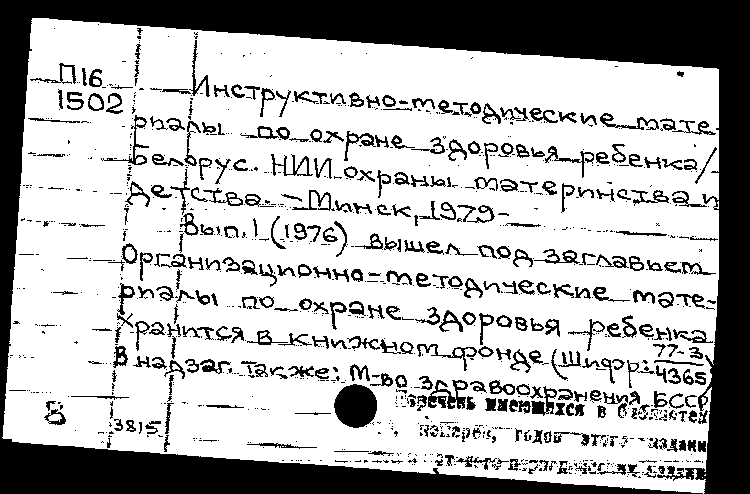 П16
1502
Инструктивно-методические мате-
риалы по охране здоровья ребенка/
Белорус. НИИ охраны материнства и
детства. – Минск, 1979-
Вып.1 (1976) вышел под заглавием
Организационно-методические мате-
риалы по охране здоровья ребенка
Хранится в книжном фонде (Шифр: 77-3/4365)
В надзаг. также: М-во здравоохранения БССР
Перечень имеющихся в библиотек
номеров, годов этого издани
8
3815